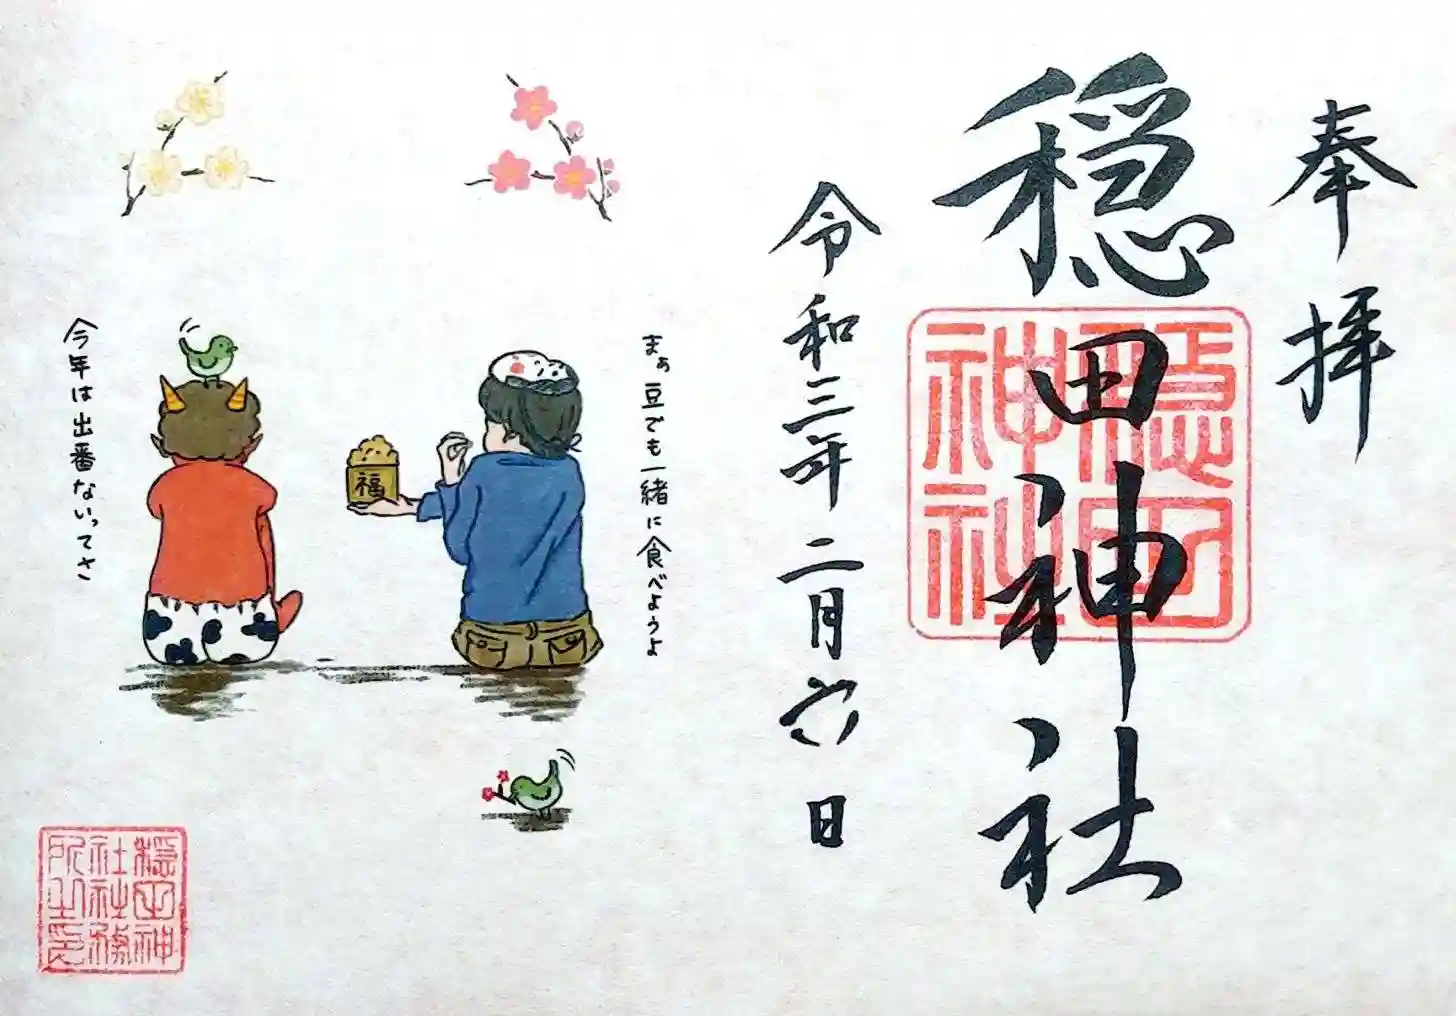 奉拝
穏田神社
穏田
神社
令和三年二月六日
まぁ豆でも一緒に食べようよ
福
今年は出番ないってさ
穏田神
社社務
所之印